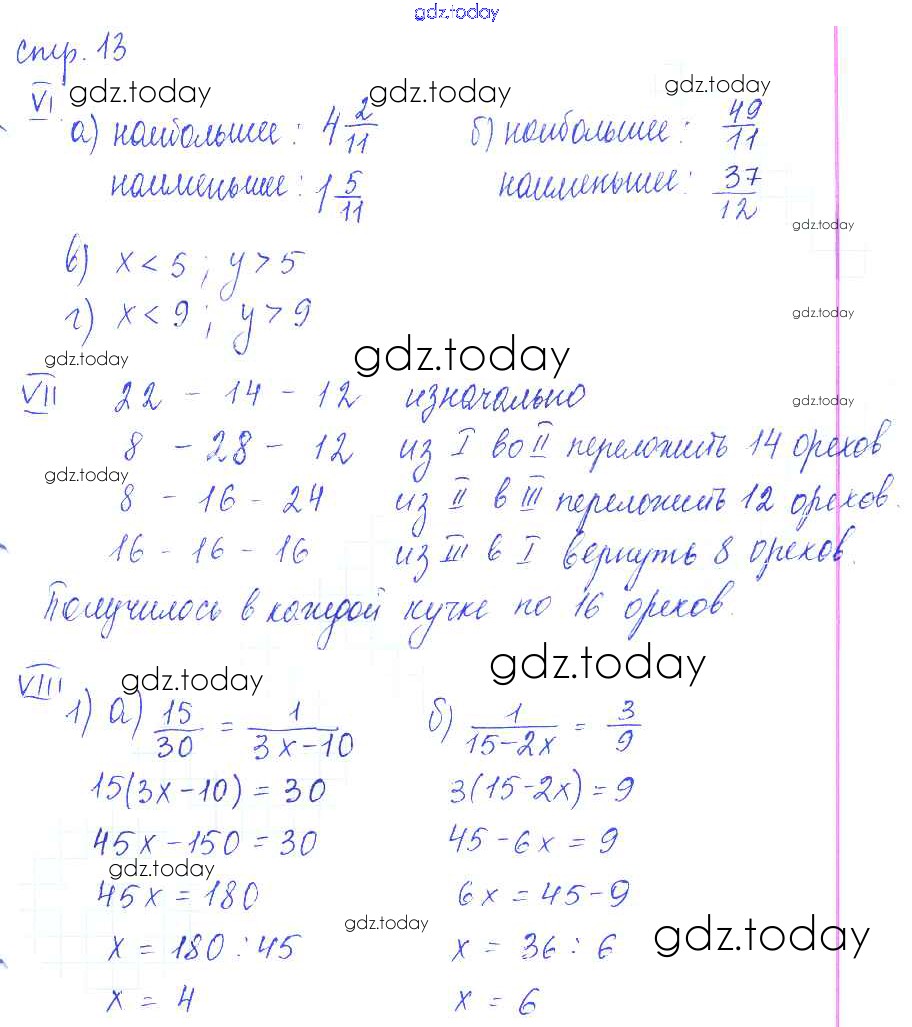 gdz.today
стр. 13
gdz.today gdz.today gdz.today
VI а) наибольшее: 4 2/11 б) наибольшее: 49/11
наименьшее: 1 5/11 наименьшее: 37/12
gdz.today
в) x < 5; y > 5
г) x < 9; y > 9
gdz.today
gdz.today gdz.today
VII 22 - 14 - 12 изначально
gdz.today
8 - 28 - 12 из I во II переложить 14 орехов
gdz.today
8 - 16 - 24 из II в III переложить 12 орехов.
16 - 16 - 16 из III в I вернуть 8 орехов.
Получилось в каждой кучке по 16 орехов.
gdz.today gdz.today
VIII 1) а) 15/30 = 1/(3x-10) б) 1/(15-2x) = 3/9
15(3x-10) = 30 3(15-2x) = 9
45x - 150 = 30 45 - 6x = 9
gdz.today
45x = 180 6x = 45-9
gdz.today gdz.today
x = 180 : 45 x = 36 : 6
x = 4 x = 6